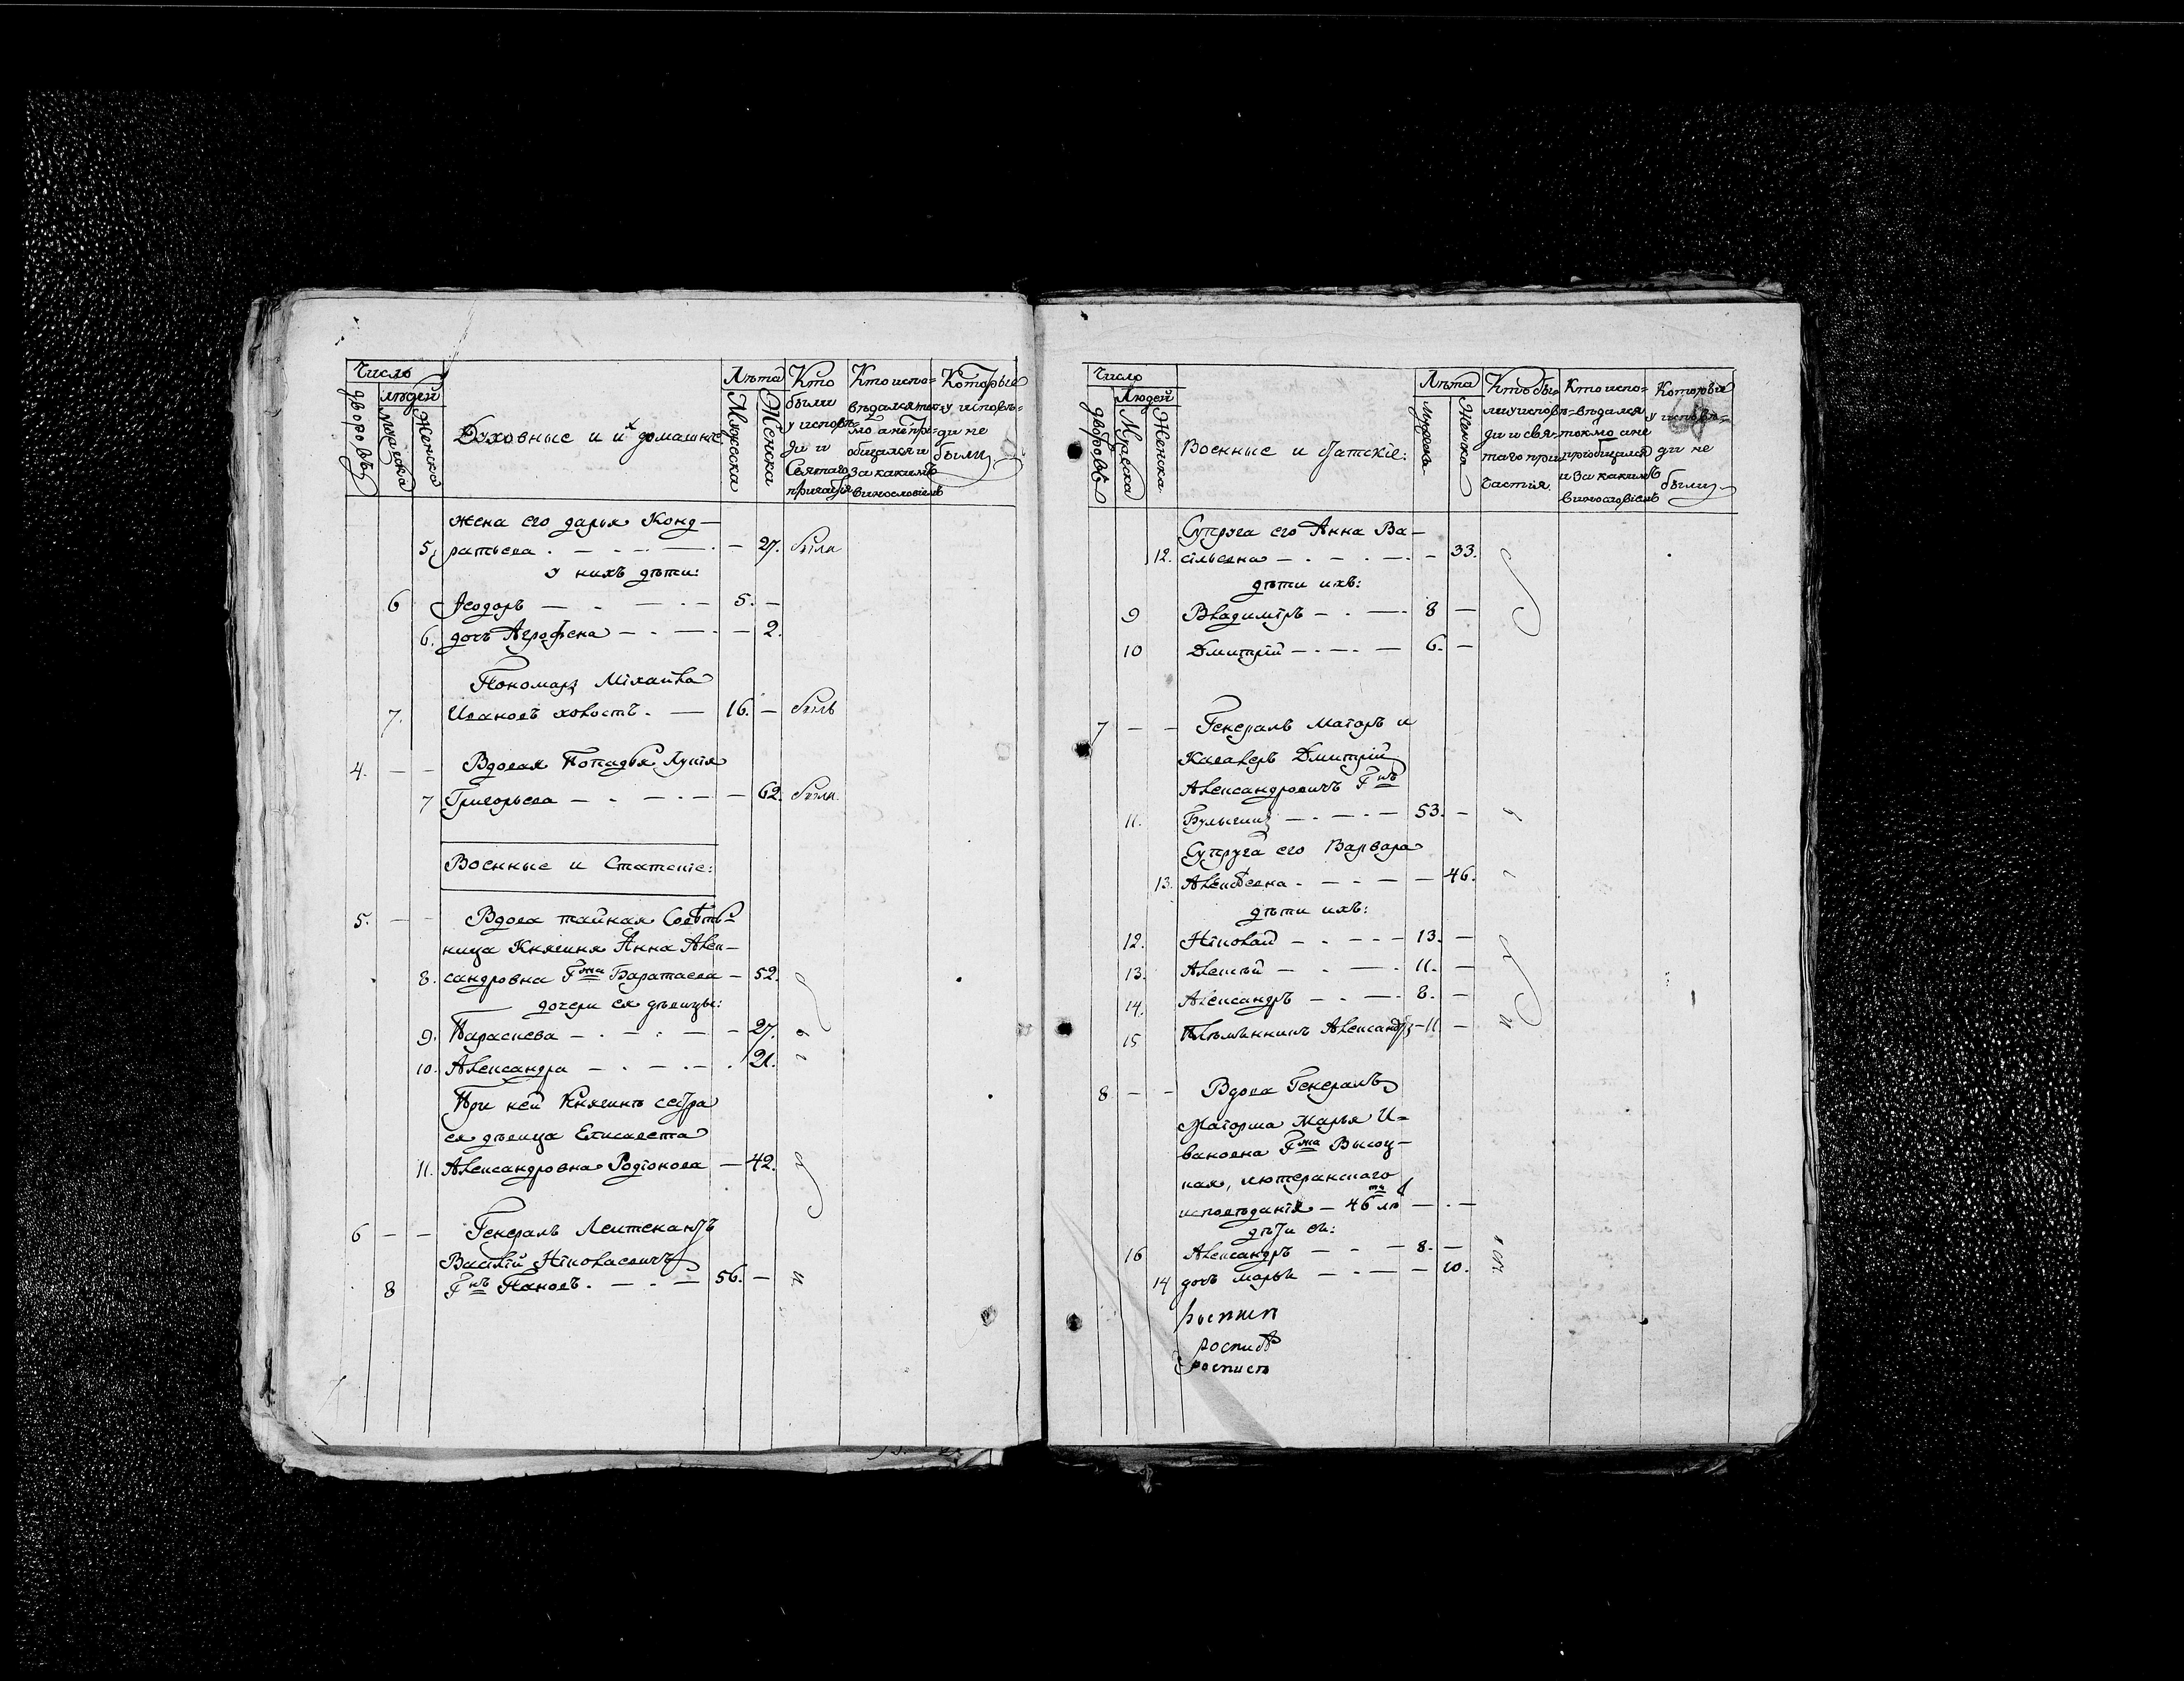 Число
людей
дворовъ
Мужеска
Женска
Духовные и их домашніе
Лѣта
Мужеска
Женска
Кто
были
у исповѣ-
ди и
Святаго
причастія
Кто испо-
вѣдался ток-
мо а не при-
общался и
за какимъ
винословіемъ
Которые
у исповѣ-
ди не
были
жена его дарья Конд-
5. ратьева . — — — 27. была
у нихъ дѣти:
6 Ѳеодоръ — 5. —
6. дочь Агрофена — — 2.
Пономарь Міхаила
7. Ивановъ холостъ. — 16. — былъ
4. — — Вдовая Попадья Лукія
7 Григорьева — — 62. была
Военные и Статскіе:
5. — — Вдова тайная Совѣтъ-
ница Княгиня Анна Алек-
8. сандровна Г жа Баратаева — 52.
дочери ея дѣвицы:
9. Параскева — — 27.
10. Александра — 21.
При ней Княгинѣ сестра
ея дѣвица Елисавета
11. Александровна Родіонова — 42.
6 — — Генералъ Леитенантъ
Василій Ніколаевичъ
8 Г нъ Пановъ. — 56. —
Число
Людей
дворовъ
Мужеска
Женска
Военные и статскіе:
Лѣта
Мужеска
Женска
Кто бы-
ли у исповѣ-
ди и свя-
таго при
частія
Кто испо-
вѣдался
токмо а не
пріобщался
и за какимъ
винословіемъ
Которые
у исповѣ-
ди не
были
Супруга его Анна Ва-
12. сільевна — — 33.
дѣти ихъ:
9 Владиміръ — 8 —
10 Дмитрій — 6. —
7 — — Генералъ Маіоръ и
Кавалеръ Дмитрій
Александровичъ Г нъ
11. Булыгинъ — 53. —
Супруга его Варвара
13. Алексѣевна . — — 46.
дѣти ихъ:
12. Ніколай — 13. —
13. Алексѣй — 11. —
14. Александръ — 8. —
15 Племянникъ Александръ — 11 —
8 — — Вдова Генералъ
Маіорша Марья И-
вановна Г жа Высоц-
кая, лютеранскаго
исповѣданія — 46 ти лѣ — . —
дѣти ей:
16 Александръ — 8. —
14 дочь Марья — — 10.
роспись
роспись
роспись